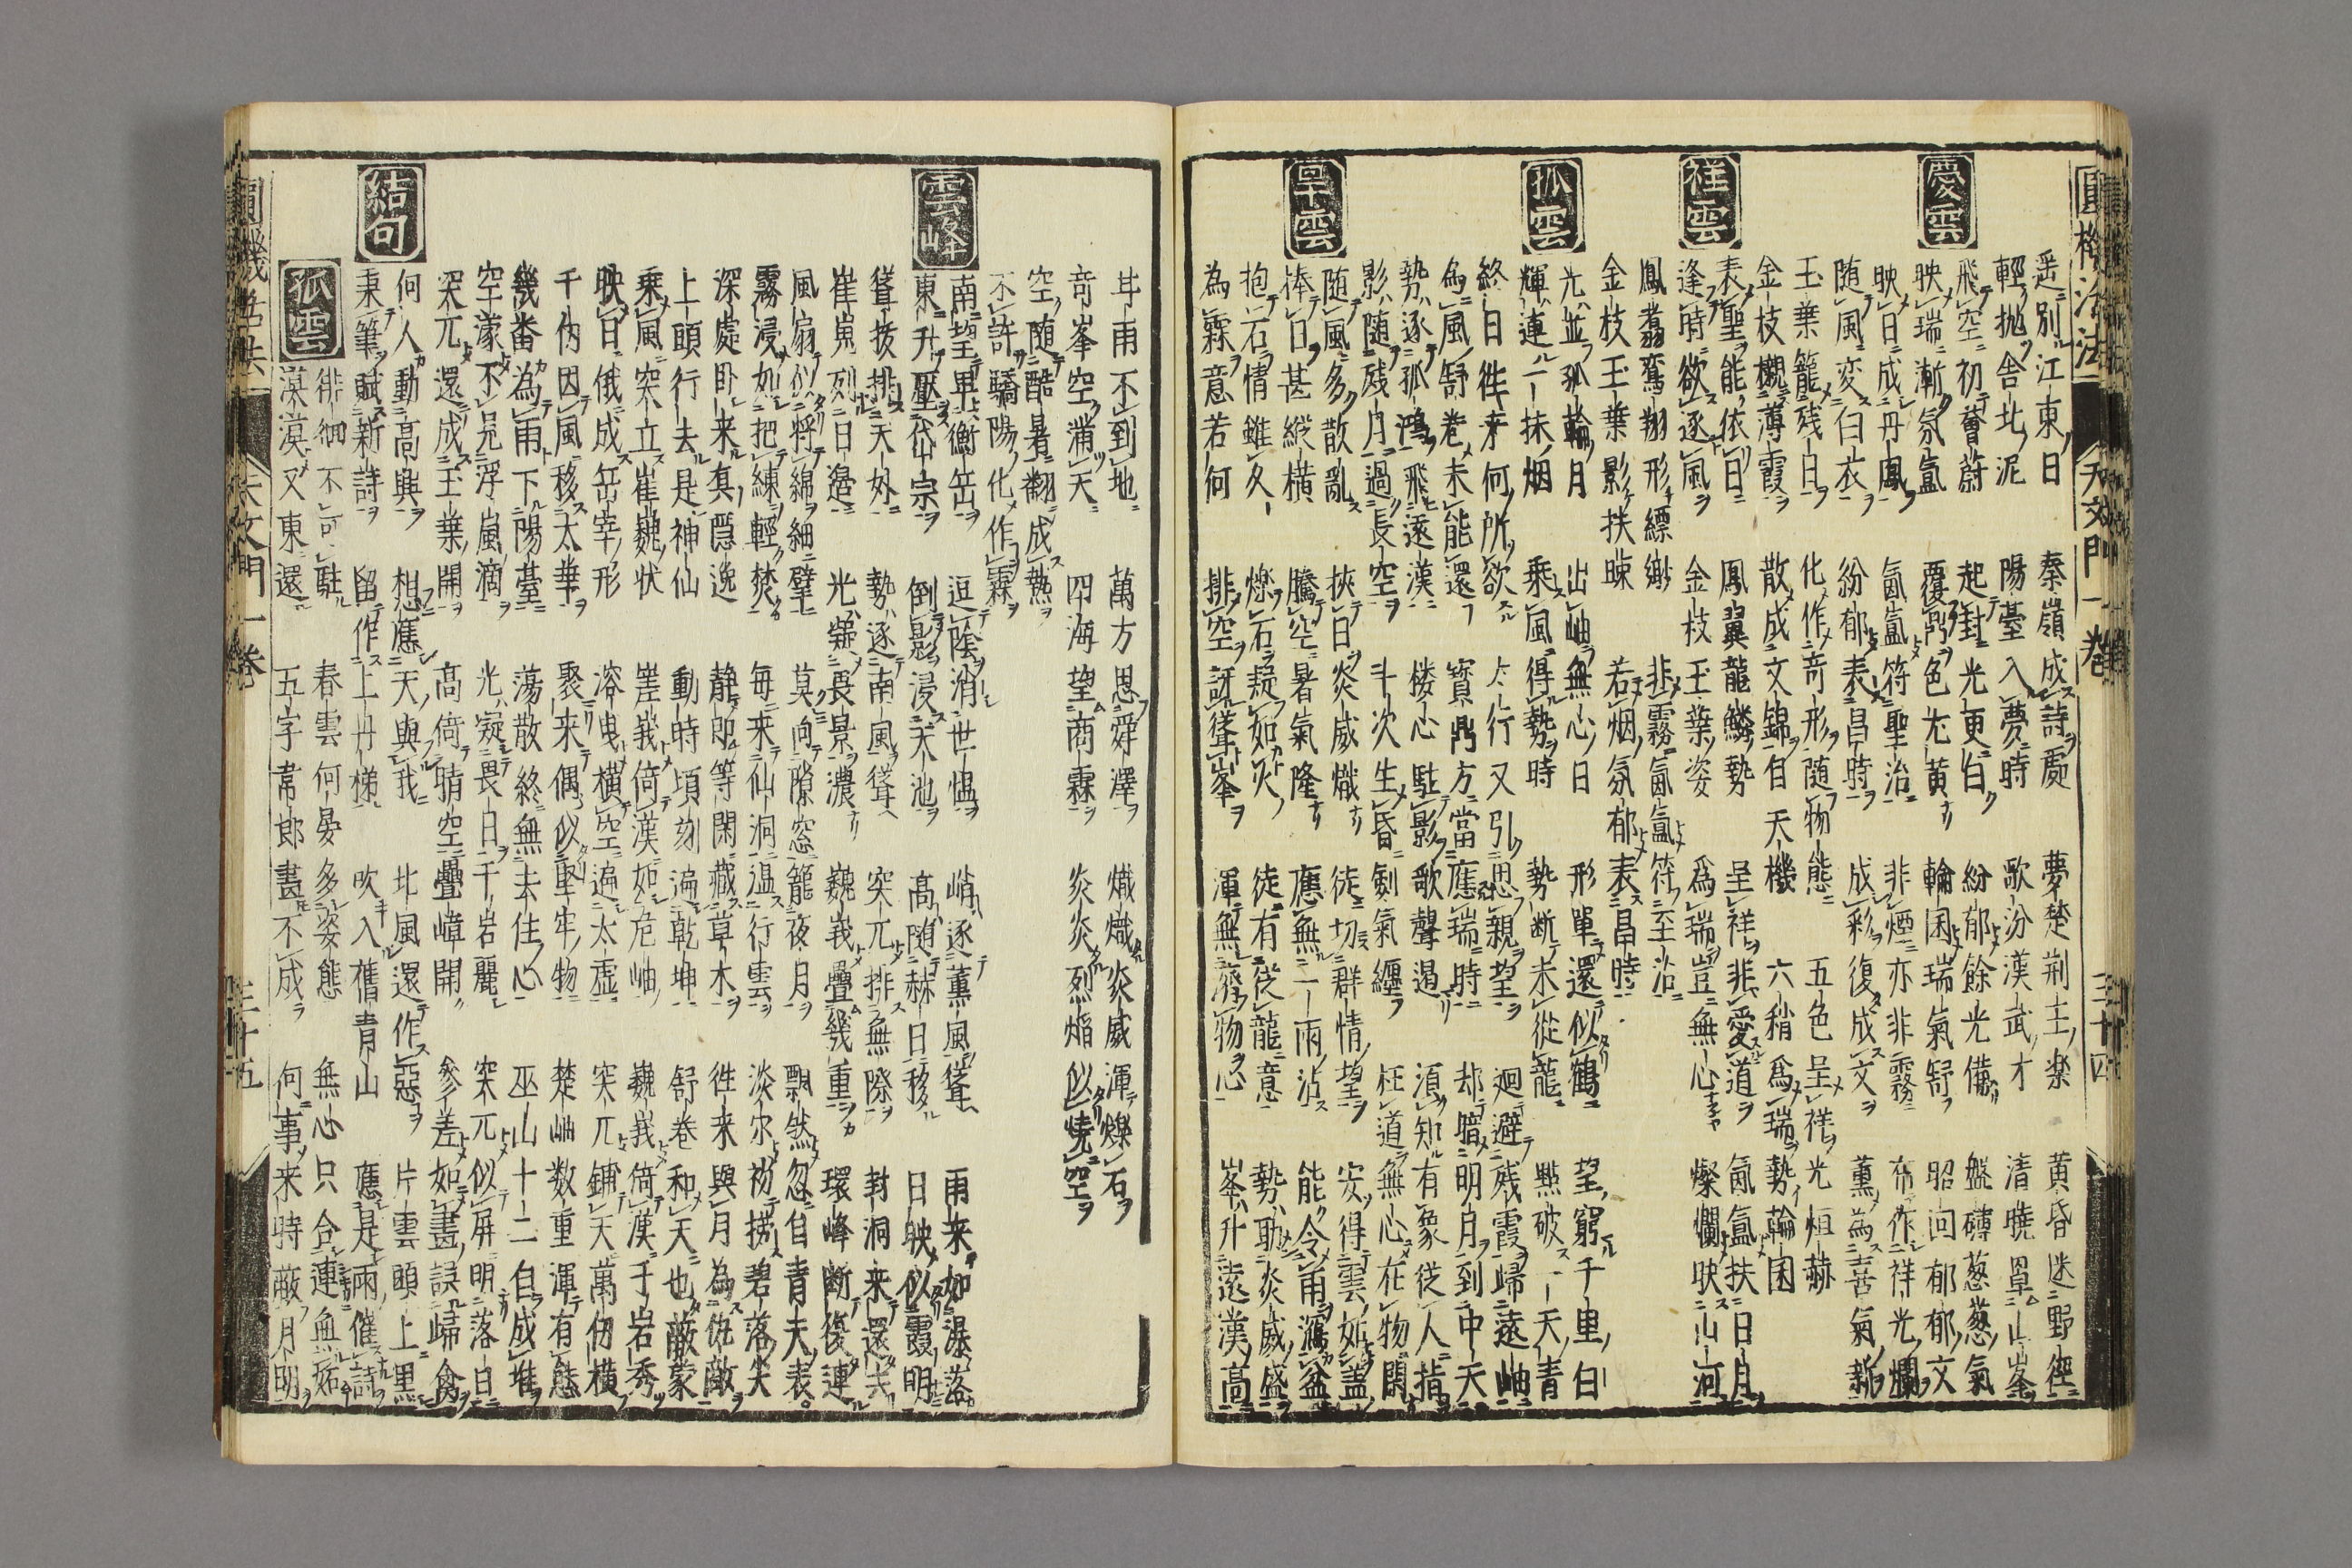 圓機活法 天文門一卷 三十四
遥別江東日 秦嶺成詩處 夢楚荆王楽 黄昏迷野徑
輕抛舎北泥 陽臺入夢時 歌汾漢武才 清曉罩山峯
慶雲
飛空初薈蔚 起封光更白 紛郁餘光備 盤礴葱葱氣
映瑞漸氛氳 覆鼎色尤黄 輪囷瑞氣舒 昭回郁郁文
映日成丹鳳 氤氳符聖治 非煙亦非霧 布作祥光爛
随風変白衣 紛郁表昌時 成彩復成文 薫為喜氣新
玉葉籠残日 化作竒形随物態 五色呈祥光烜赫
金枝襯薄霞 散成文錦自天機 六稍為瑞勢輪囷
表聖能依日 鳳翼龍鱗勢 呈祥非愛道 氤氳扶日月
祥雲
逢時欲逐風 金枝玉葉姿 為瑞豈無心 燦爛映山河
鳳翥鸞翔形縹緲 非霧氤氳符至治
金枝玉葉影扶踈 若烟氛郁表昌時
光並孤輪月 出岫無心日 形單還似鶴 望窮千里白
孤雲
輝連一抹烟 乗風得勢時 勢断未従龍 點破一天青
終日徃来何所欲 太行又引思親望 廻避残霞歸遠岫
為風舒巻未能還 寳鼎方當應瑞時 却暗明月到中天
勢逐孤鴻飛遠漢 楼心駐影歌聲遏 須知有象従人指
影随残月過長空 斗次生昏剣氣纏 枉道無心在物閑
随風多散亂 挾日炎威熾 徒切群情望 安得雲如蓋
旱雲
捧日甚縦横 騰空暑氣隆 應無一雨沾 能令甬瀉盆
抱石情雖久 爍石疑如火 徒有従龍意 勢助炎威盛
為霖意若何 排空訝聳峯 渾無濟物心 峯升遠漢高
甘雨不到地 萬方思舜澤 熾熾炎威渾爍石
竒峯空滿天 四海望商霖 炎炎烈焔似焼空
空随酷暑翻成熱
不許驕陽化作霖
南望卑衡岳 逗陰消世愠 峭逐薫風聳 雨来如瀑落
雲峰
東升壓岱宗 倒影浸天池 高随赫日移 日映似霞明
聳抜排天外 勢逐南風聳 突兀排無際 封洞来還去
崔嵬列日邉 光凝畏景濃 巍峩疊幾重 環峰断復連
風扇似将綿細擘 莫向隙窓籠夜月 飄然忽自青天表
霧浸如把練輕焚 毎来仙洞温行雲 淡尓初捞碧落尖
深處卧来真隠逸 静即等閑藏草木 徃来與月為仇敵
上頭行去是神仙 動時頃刻遍乾坤 舒巻和天也蔽蒙
乗風突立崔巍状 崖峩倚漢如危岫 巍峩倚漢千岩秀
映日俄成岳宰形 溶曳横空遍太虚 突兀鋪天萬仭横
千仭因風移太華 聚来偶似堅牢物 楚岫数重渾有態
幾番為雨下陽臺 蕩散終無去住心 巫山十二自成堆
空濛不見浮嵐滴 光凝畏日千岩麗 突兀似屏明落日
突兀還成玉葉開 高倚晴空疊嶂開 參差如畫誤歸禽
何人動高興 想應天與我 北風還作惡 片雲頭上黒
結句
秉筆賦新詩 留作上丹梯 吹入舊青山 應是兩催詩
孤雲
徘徊不可駐 春雲何晏多姿態 無心只合連無妬
漠漠又東還 五字常郎畫不成 何事来時蔽月明
圓機活法 天文門一卷 三十五